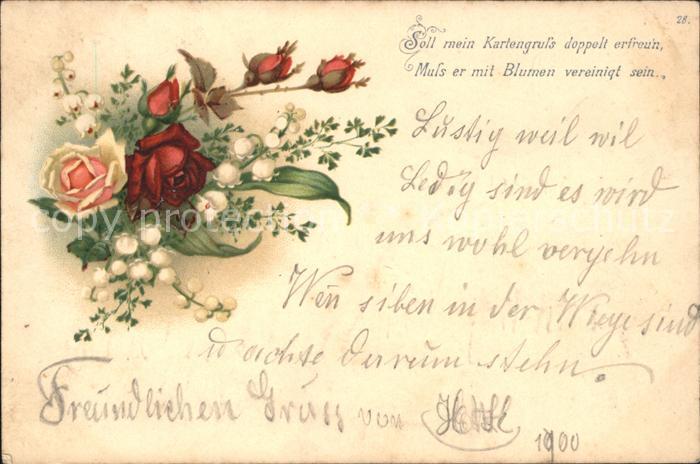 28.
Soll mein Kartengruſs doppelt erfreu'n,
Muſs er mit Blumen vereinigt sein.
Lustig weil wil
Ledig sind es wird
uns wohl vergehn
Wen siben in der Wiege sind
u achte darum stehn.
Freundlichen Gruss von
1900
copy protection Kopierschutz